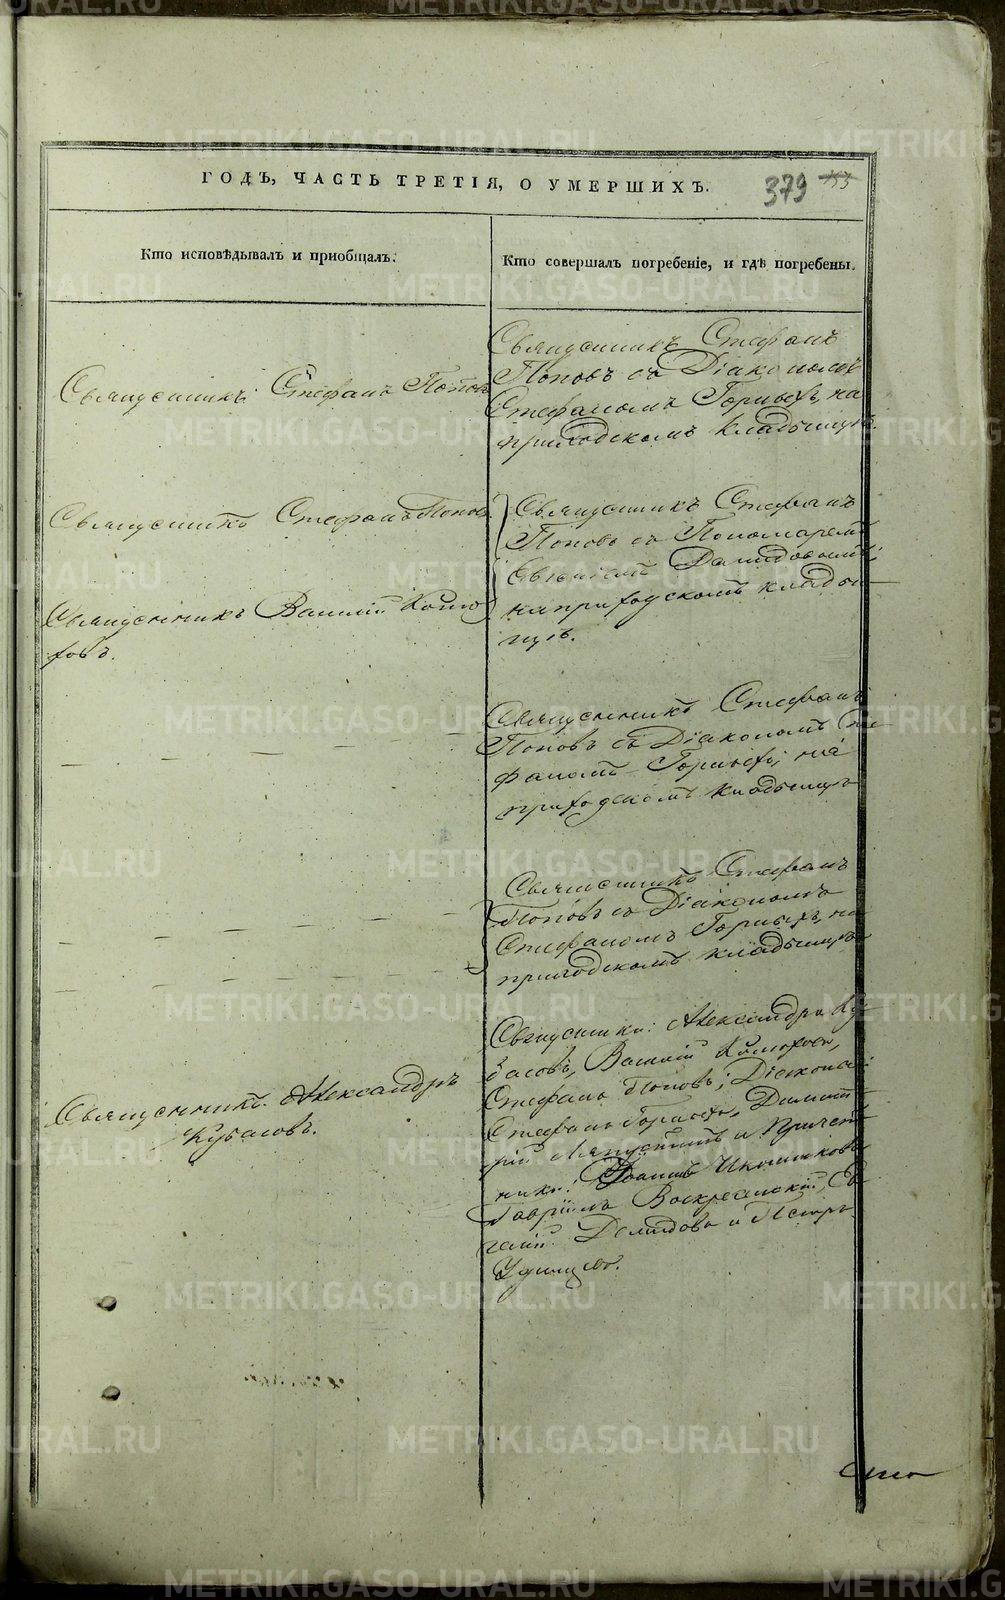 ГОДЪ, ЧАСТЬ ТРЕТІЯ, О УМЕРШИХЪ.
379 153
Кто исповѣдывалъ и пріобщалъ.
Кто совершалъ погребеніе, и гдѣ погребены.
Священникъ Стефанъ Поповъ
Священникъ Стефанъ
Поповъ съ Діакономъ
Стефаномъ Горныхъ, на
приходскомъ кладбищѣ.
Священникъ Стефанъ Поповъ
Священникъ Василій
ровъ.
Священникъ Стефанъ
Поповъ съ Пономаремъ
Евгеніемъ Демидовымъ,
на приходскомъ кладби-
щѣ.
Священникъ Стефанъ
Поповъ съ Діакономъ Сте
фаномъ Горныхъ, на
приходскомъ кладбищѣ
Священникъ Стефанъ
Поповъ съ Діакономъ
Стефаномъ Горныхъ, на
приходскомъ кладбищѣ
Священникъ Александръ
Кубасовъ.
Священники: Александръ Ку
басовъ, Василій
Стефанъ Поповъ; Діакона:
Стефанъ Горныхъ, Димит
рій и Причет
ники: Іоаннъ Иконниковъ
Гавріилъ Воскресенскій, Ев
геній Демидовъ и Петръ
Удинцовъ.
METRIKI.GASO-URAL.RU